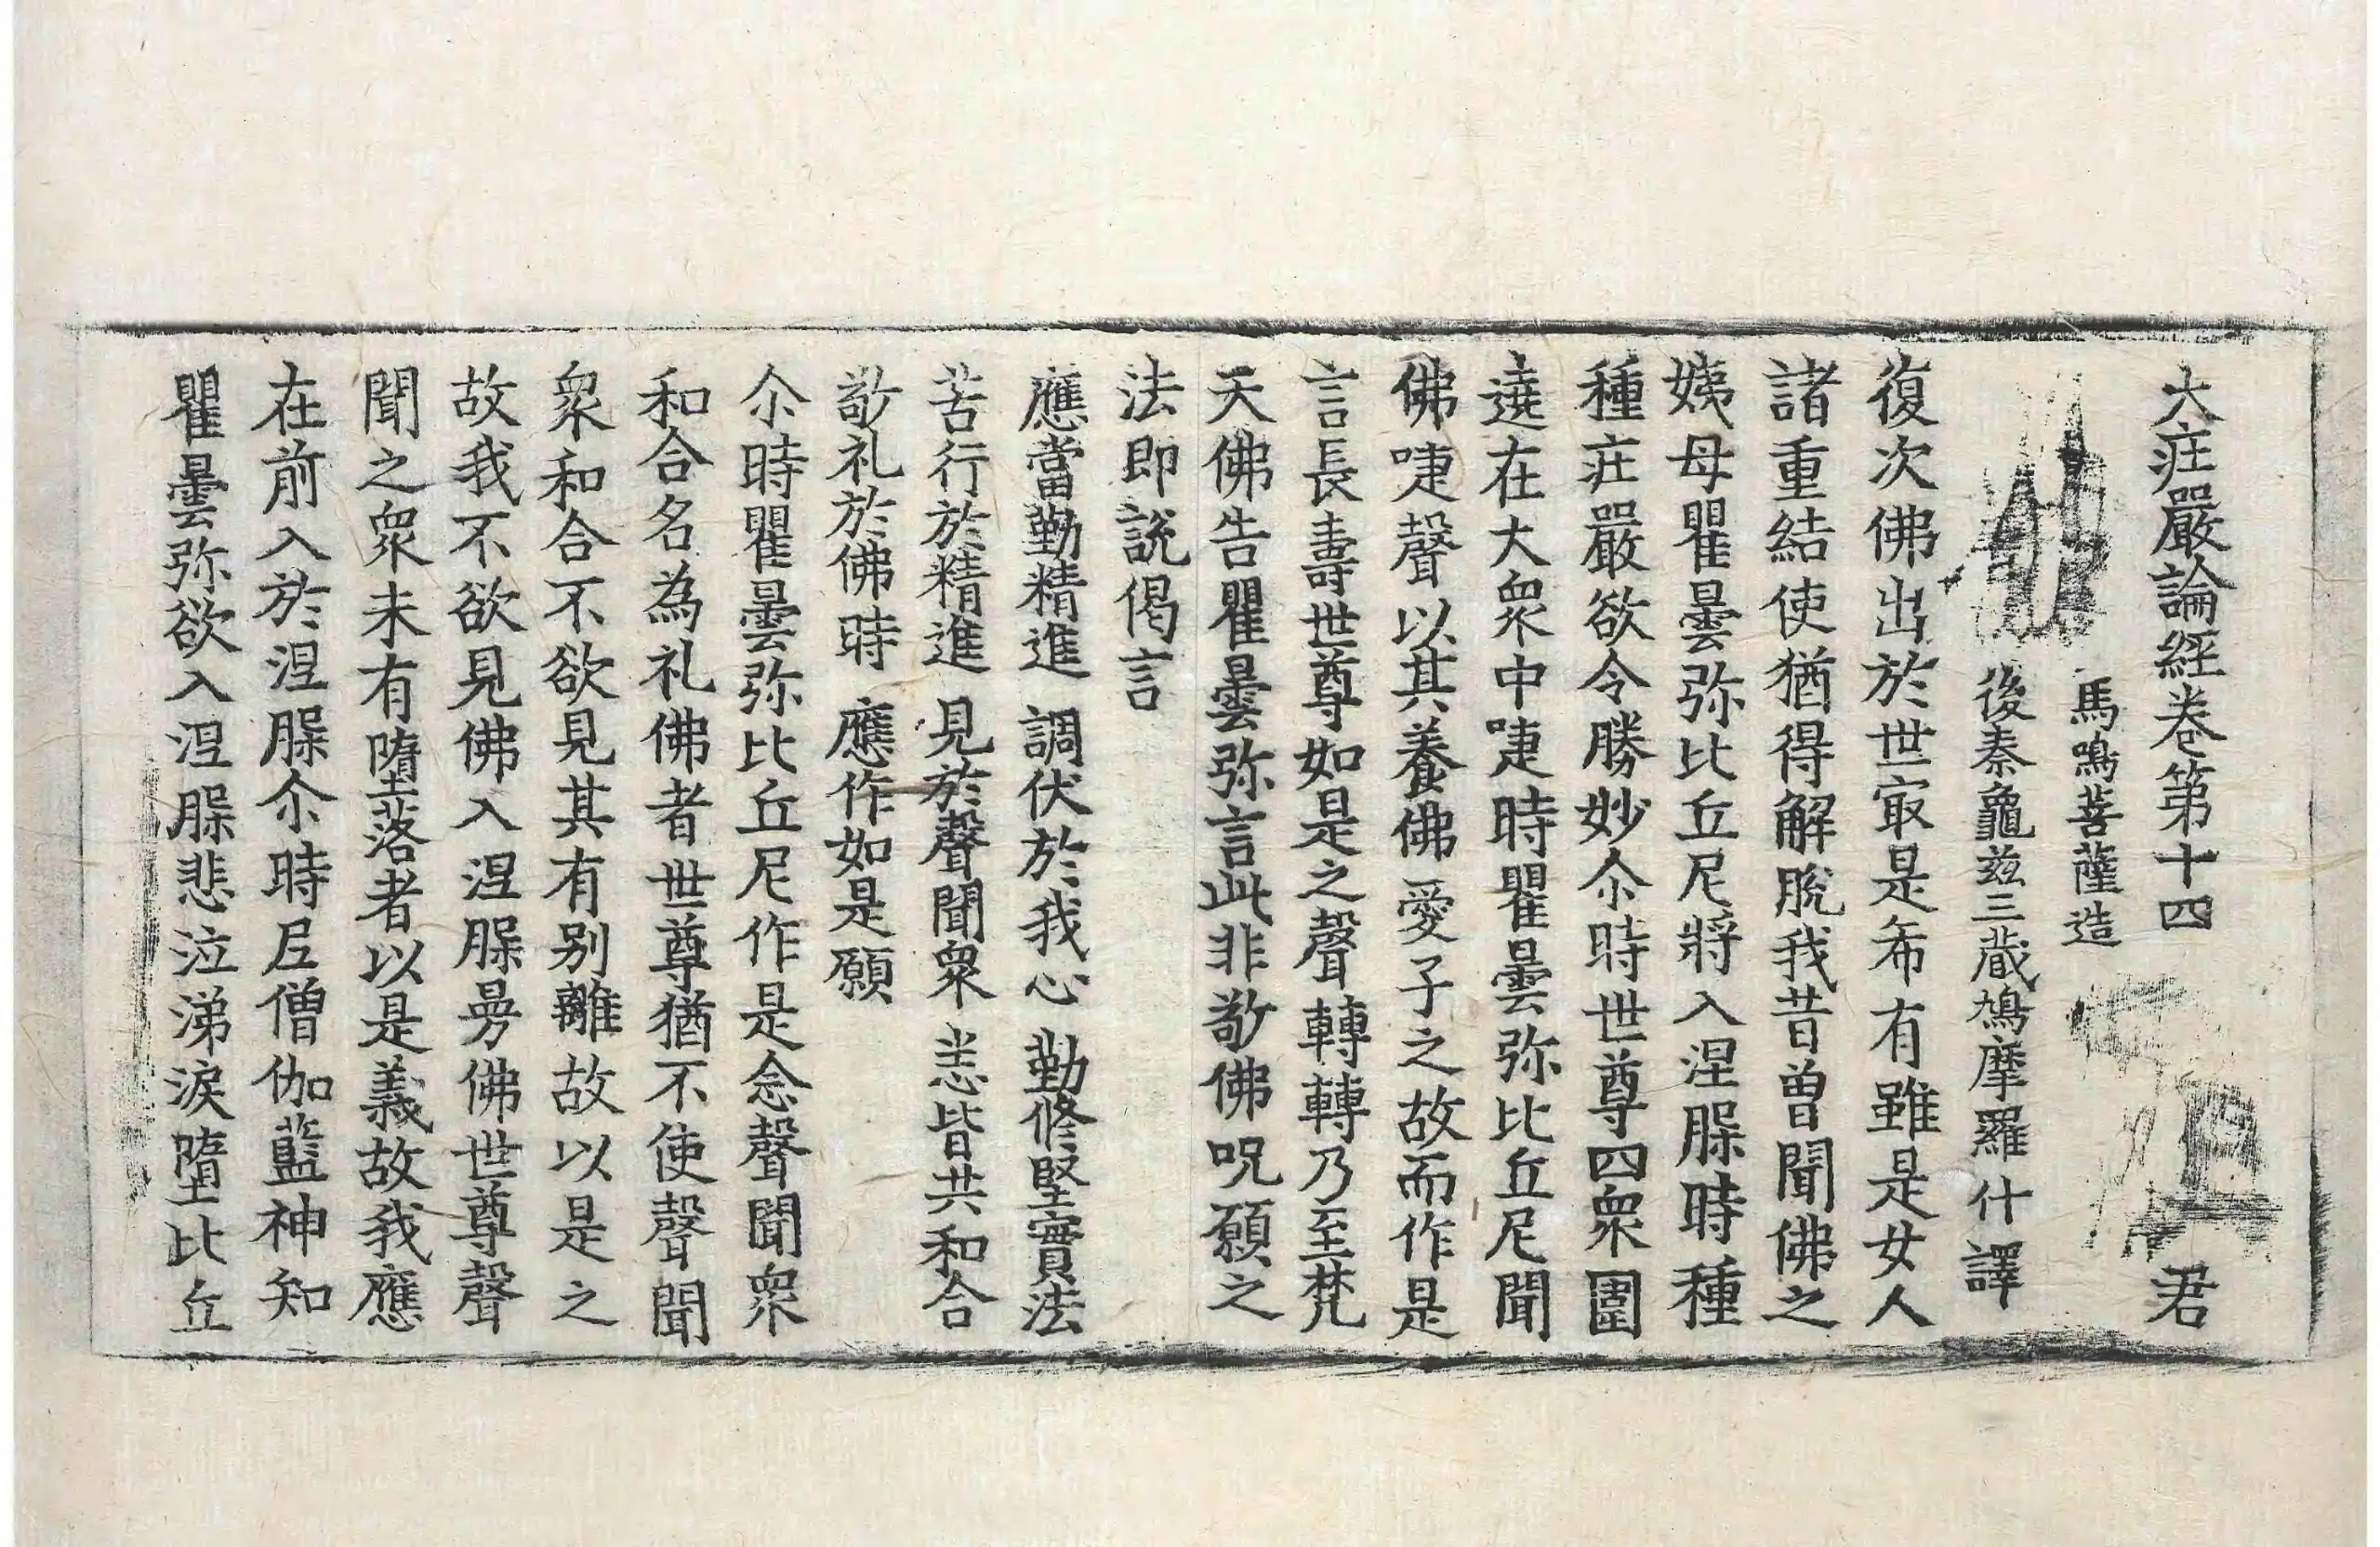 大庄嚴論經卷第十四 君
馬鳴菩薩造
後秦龜玆三蔵鳩摩羅什譯
復次佛出於世㝡是希有雖是女人
諸重結使猶得解脫我昔曾聞佛之
姨母瞿曇弥比丘尼將入涅槃時種
種庄嚴欲令勝妙尒時世尊四衆圍
遶在大衆中㖶時瞿曇弥比丘尼聞
佛㖶聲以其養佛愛子之故而作是
言長壽世尊如是之聲轉轉乃至梵
天佛告瞿曇弥言此非敬佛呪願之
法即說偈言
應當勤精進 調伏於我心 勤修堅實法
苦行於精進 見於聲聞衆 恙皆共和合
敬礼於佛時 應作如是願
尒時瞿曇弥比丘尼作是念聲聞衆
和合名為礼佛者世尊猶不使聲聞
衆和合不欲見其有别離故以是之
故我不欲見佛入涅槃曼佛世尊聲
聞之衆未有墮落者以是義故我應
在前入於涅槃尒時尼僧伽藍神知
瞿曇弥欲入涅槃悲泣涕淚墮比丘